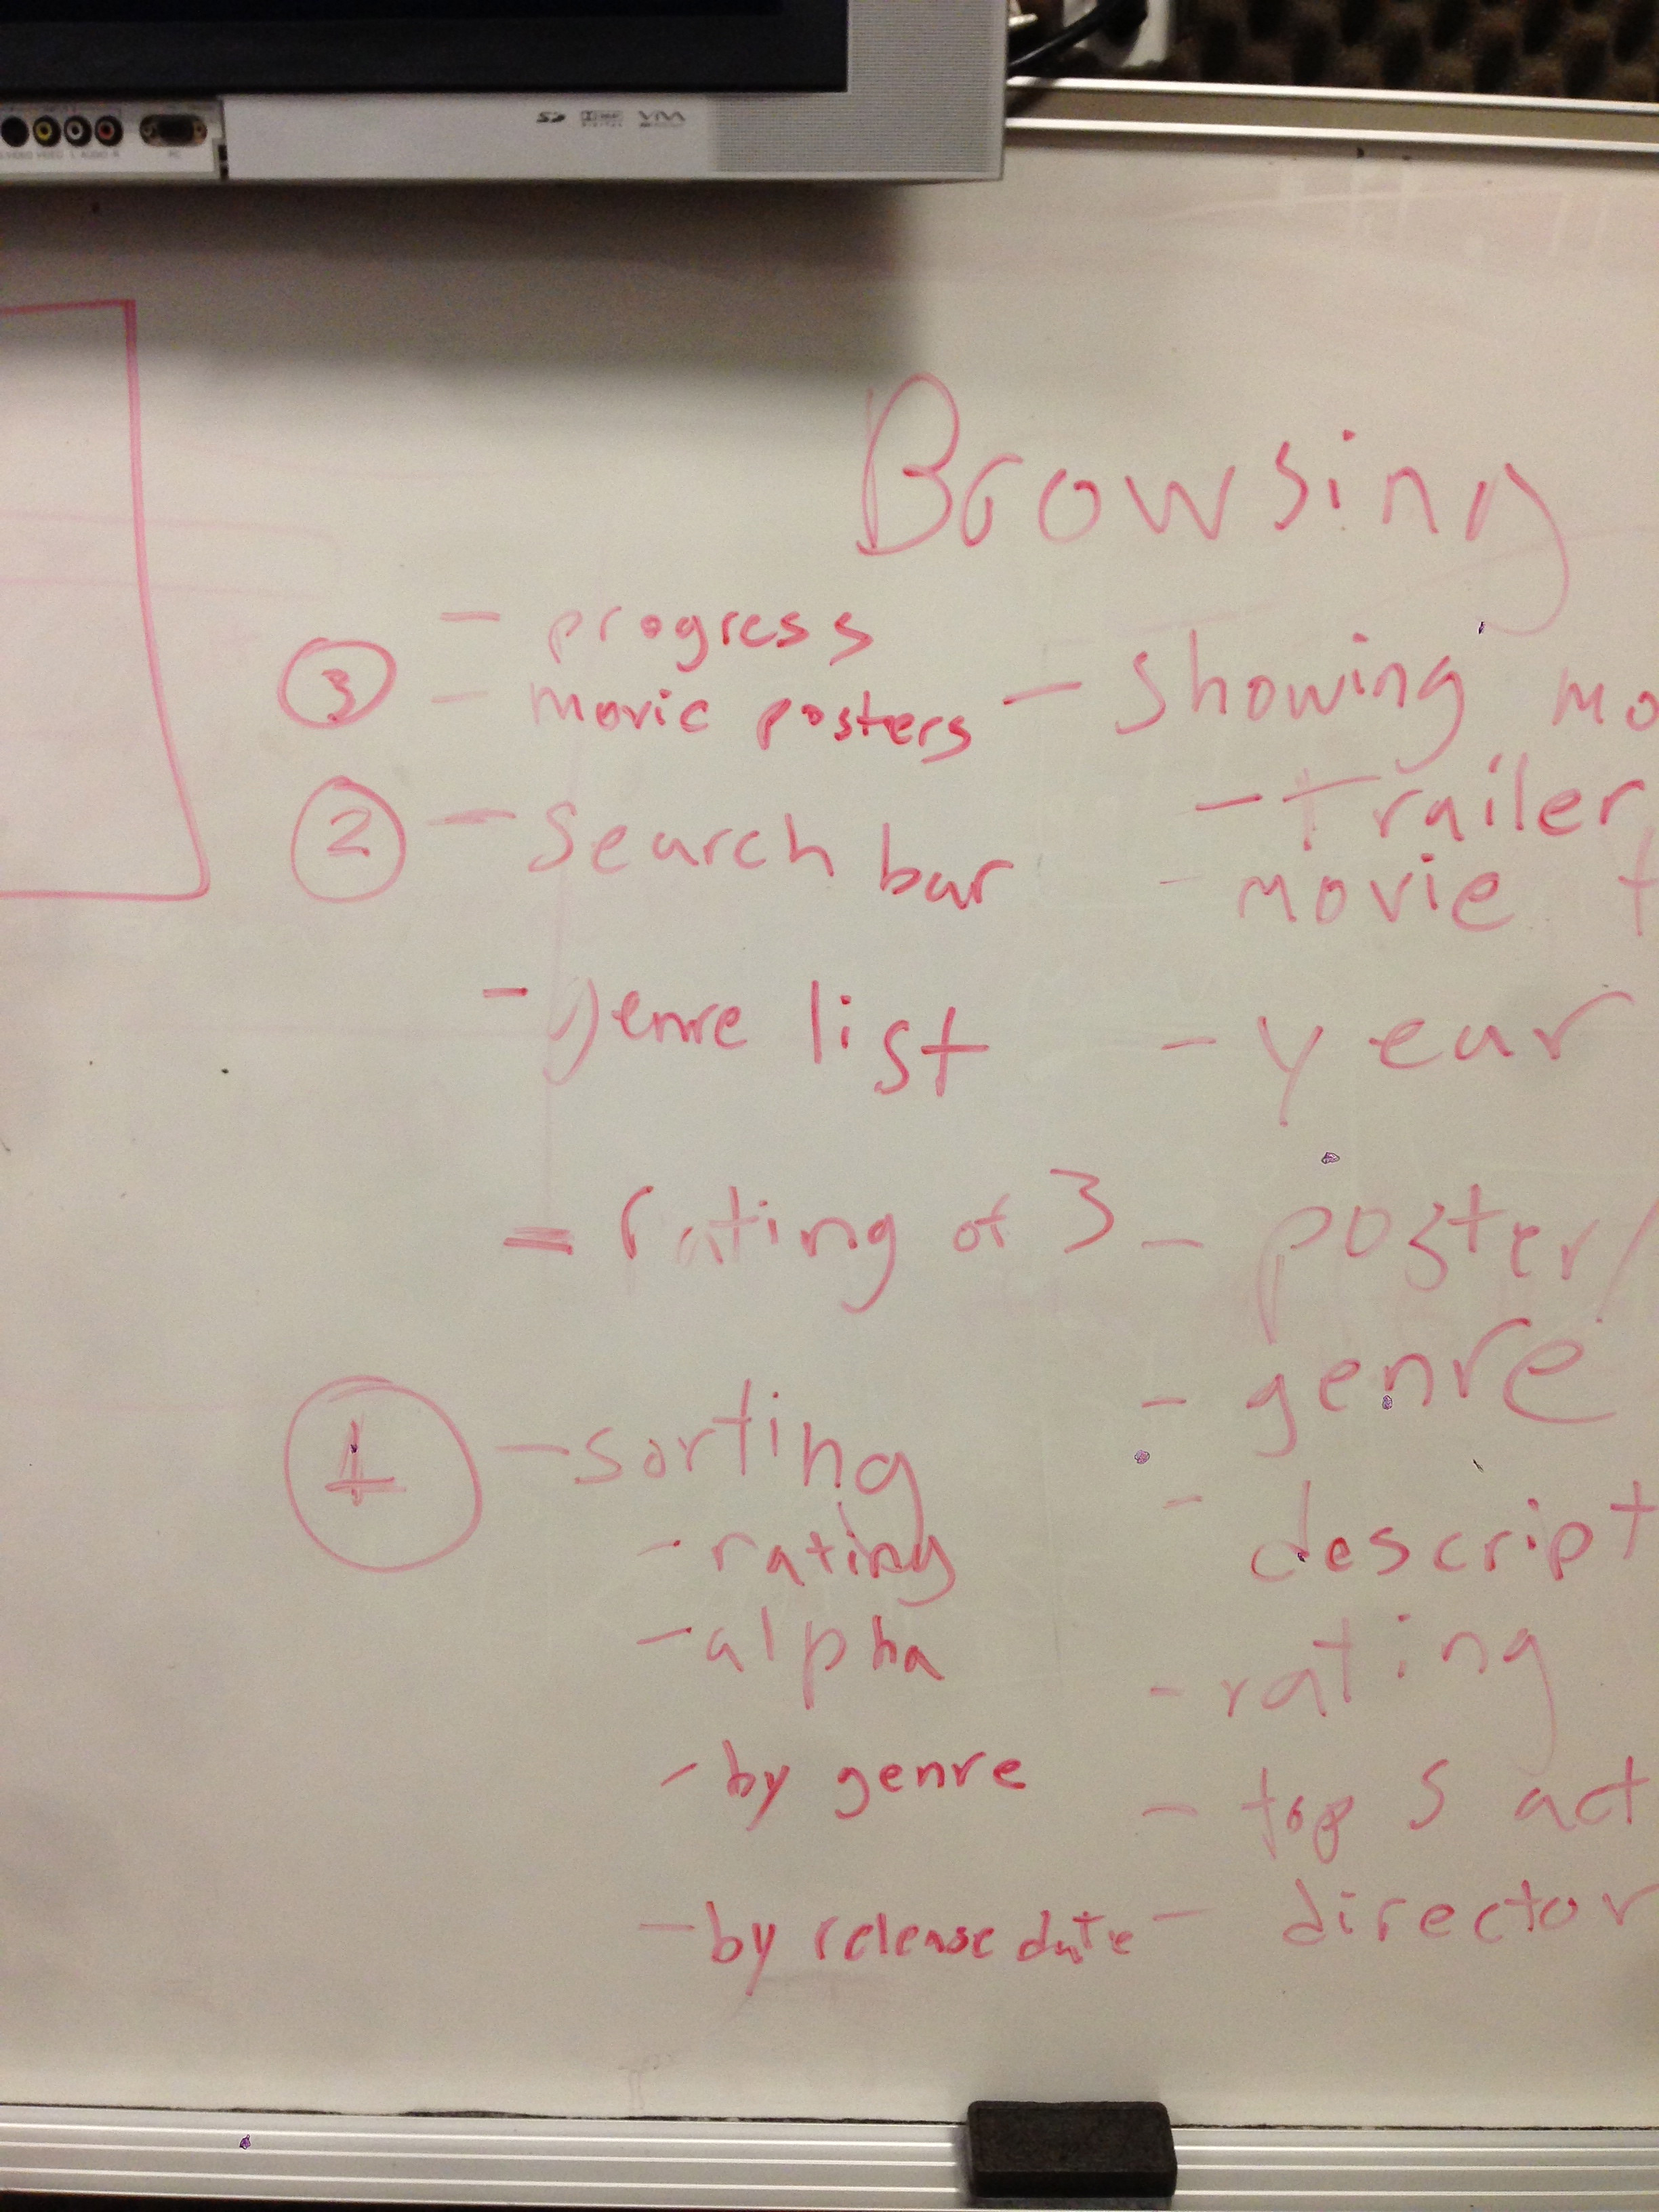 Browsing
- progress
③ - movie posters
② - search bar
- genre list
= rating of 3
① - sorting
- rating
- alpha
- by genre
- by release date
- showing mo
- trailer
- movie t
- year
- poster/
- genre
- descript
- rating
- top 5 act
- director